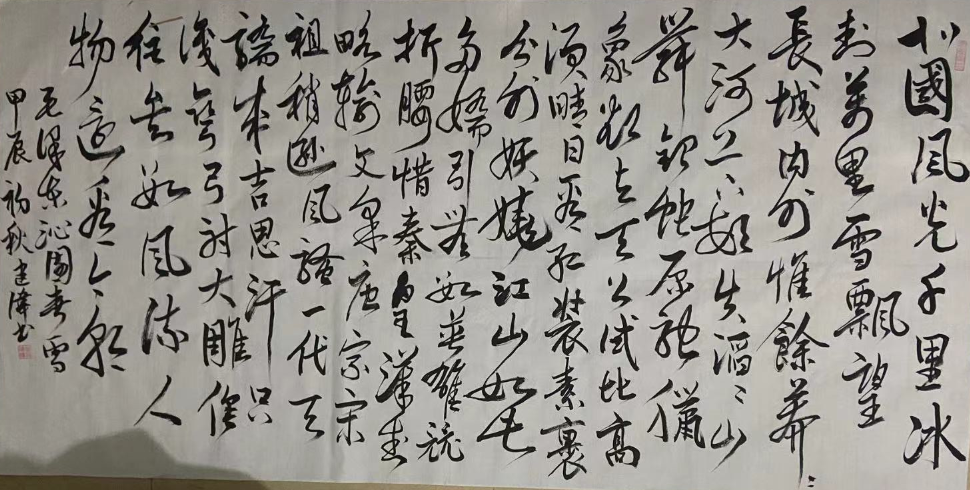 北國風光千里冰
封萬里雪飄望
長城內外惟餘莽〻
大河上下頓失滔〻山
舞銀蛇原馳臘
象欲与天公試比高
須晴日看紅裝素裹
分外妖嬈江山如此
多嬌引無數英雄競
折腰惜秦皇漢武
略輸文采唐宗宋
祖稍遜風騷一代天
驕成吉思汗只
識彎弓射大雕俱
往矣數風流人
物還看今朝
毛澤東沁園春雪
甲辰初秋建偉書